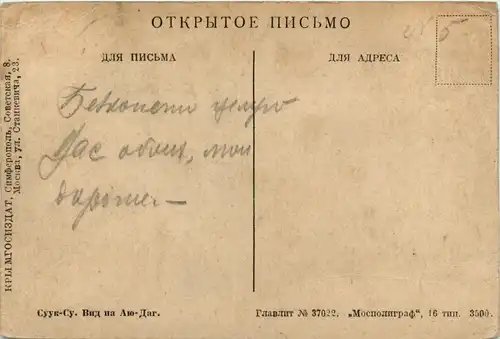 ОТКРЫТОЕ ПИСЬМО
ДЛЯ ПИСЬМА
ДЛЯ АДРЕСА
Безконечно целую
Вас обоих, мои
дорогие.—
КРЫМГОСИЗДАТ, Симферополь, Советская, 8.
Москва, ул. Станкевича, 23.
Суук-Су. Вид на Аю-Даг.
Главлит № 37022. „Мосполиграф“, 16 тип. 3500.